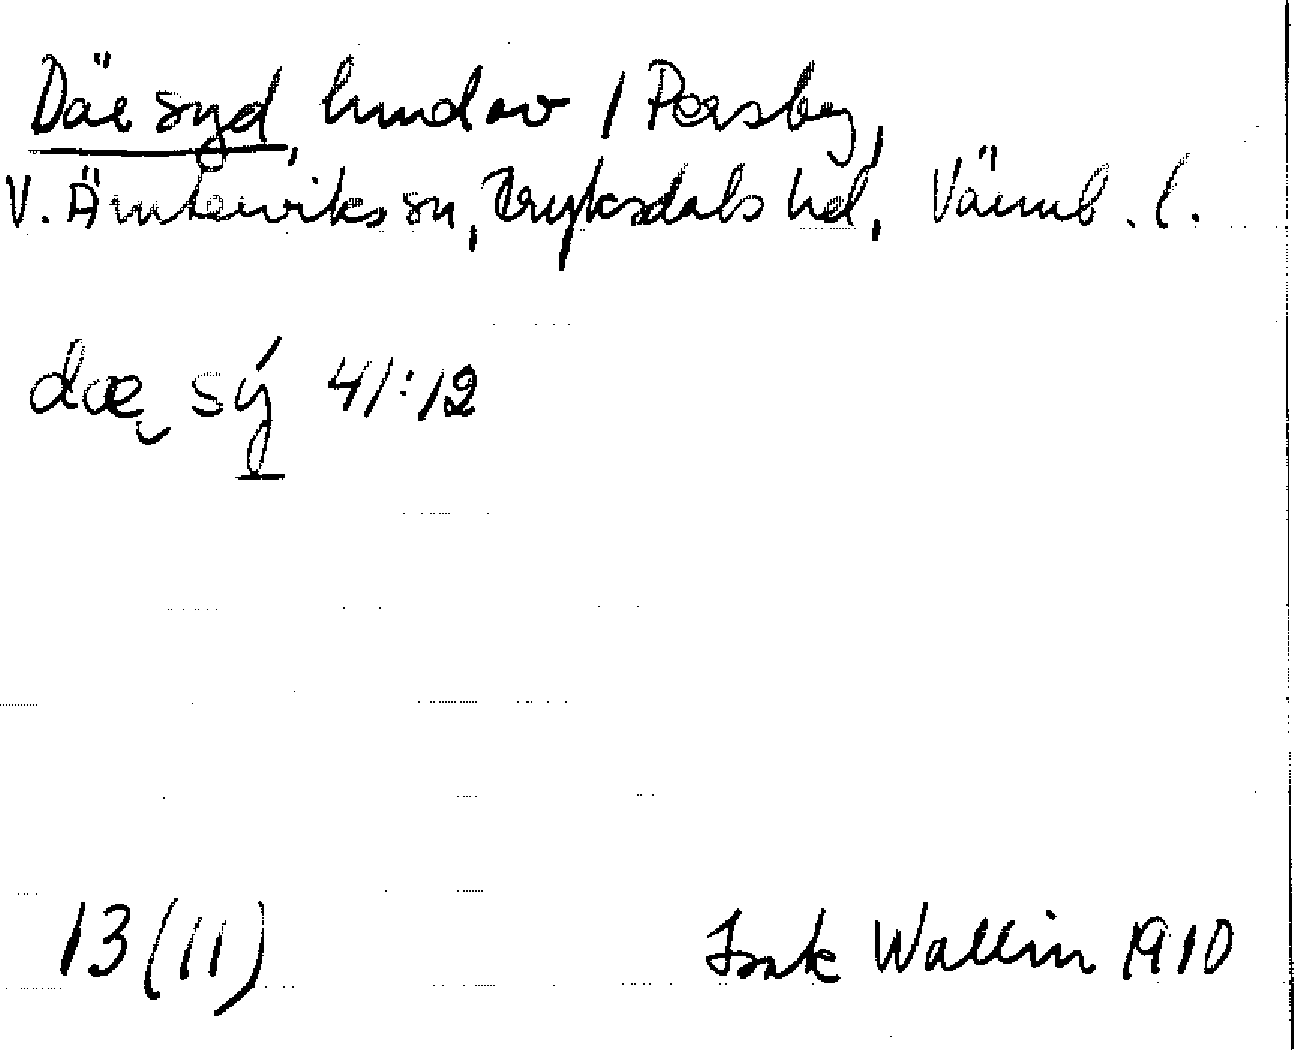 Där syd, hmd av / Persby,
V. Ämterviks sn, Fryksdals hd, Värml. l.
dæ̨ sý 41:12
13 (11) Isak Wallin 1910